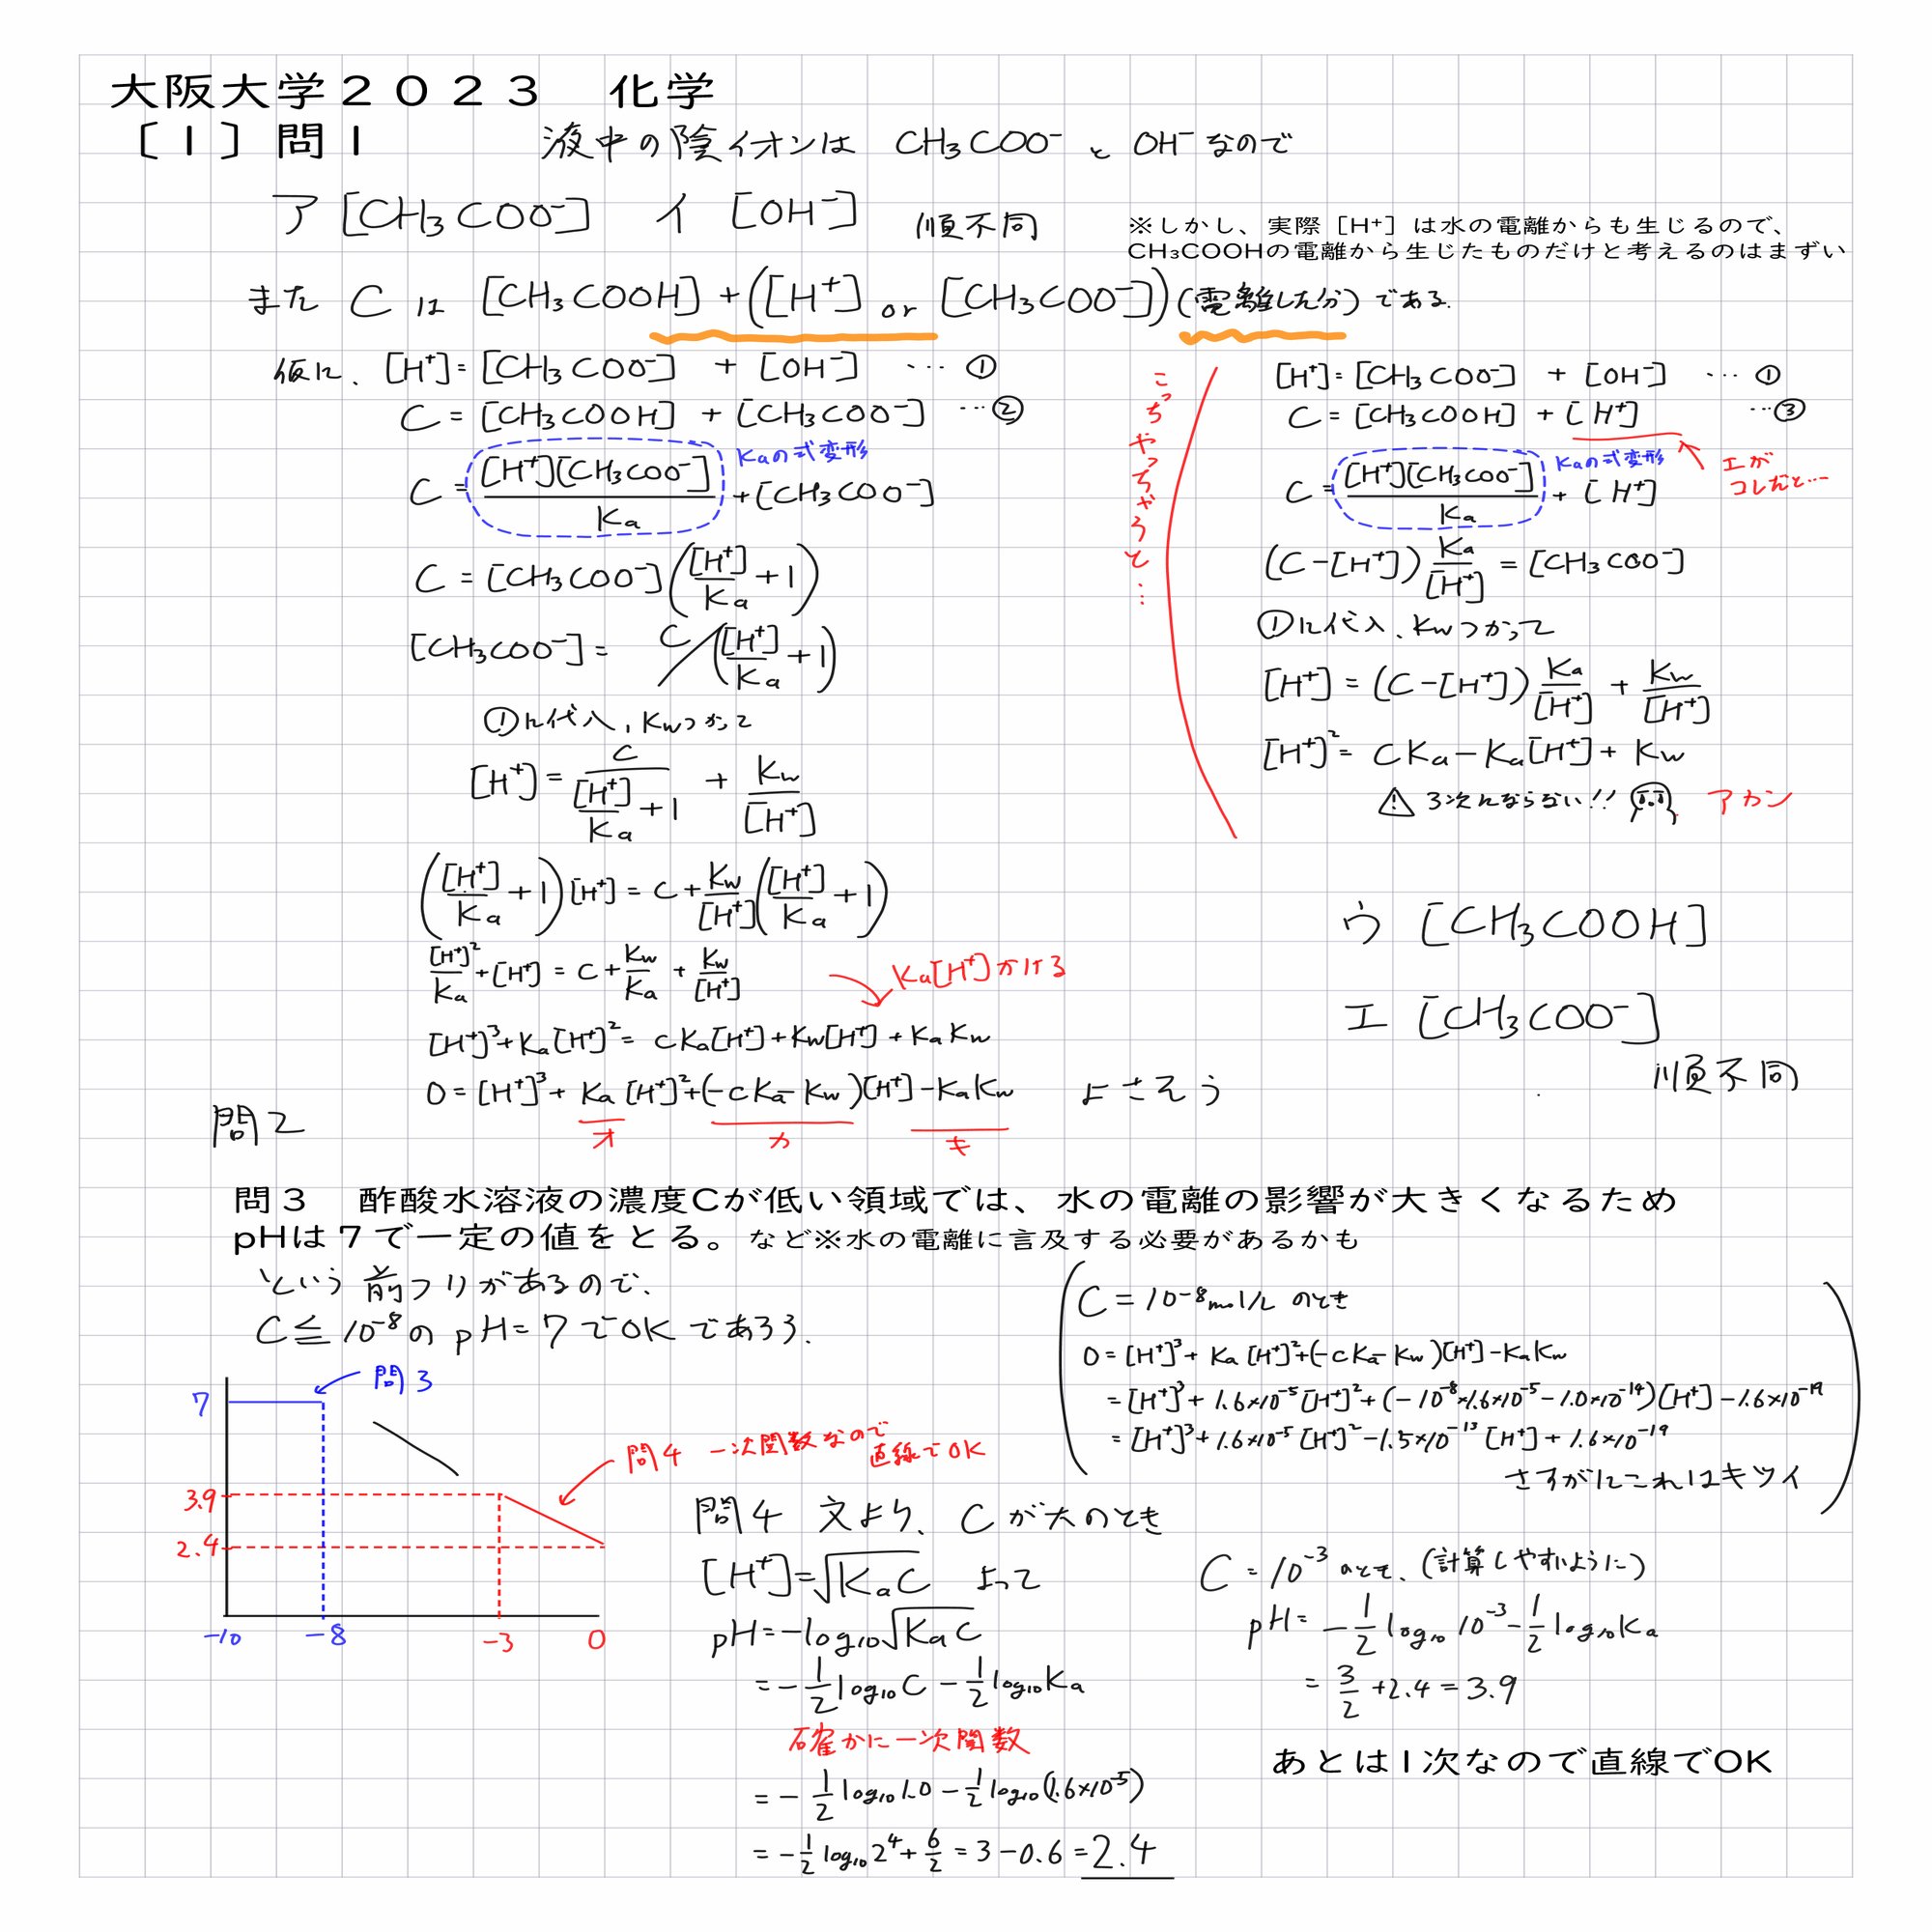 大阪大学２０２３　化学
〔１〕問１　液中の陰イオンは CH₃COO⁻ と OH⁻ なので
ア [CH₃COO⁻] イ [OH⁻] 順不同
※しかし、実際［H⁺］は水の電離からも生じるので、
CH₃COOHの電離から生じたものだけと考えるのはまずい
また C は [CH₃COOH] + ([H⁺] or [CH₃COO⁻]) (電離した分) である.
仮に、[H⁺] = [CH₃COO⁻] + [OH⁻] … ①
C = [CH₃COOH] + [CH₃COO⁻] … ②
C = [H⁺][CH₃COO⁻]/Ka + [CH₃COO⁻] Kaの式変形
C = [CH₃COO⁻]([H⁺]/Ka + 1)
[CH₃COO⁻] = C/([H⁺]/Ka + 1)
①に代入, Kwつかって
[H⁺] = C/([H⁺]/Ka + 1) + Kw/[H⁺]
([H⁺]/Ka + 1)[H⁺] = C + Kw/[H⁺]([H⁺]/Ka + 1)
[H⁺]²/Ka + [H⁺] = C + Kw/Ka + Kw/[H⁺]
Ka[H⁺]かける
[H⁺]³ + Ka[H⁺]² = CKa[H⁺] + Kw[H⁺] + KaKw
0 = [H⁺]³ + Ka[H⁺]² + (-CKa - Kw)[H⁺] - KaKw よさそう
問2 オ カ キ
こっちやっちゃうと…
[H⁺] = [CH₃COO⁻] + [OH⁻] … ①
C = [CH₃COOH] + [H⁺] … ③
C = [H⁺][CH₃COO⁻]/Ka + [H⁺] Kaの式変形
エが
コレだと…
(C-[H⁺])Ka/[H⁺] = [CH₃COO⁻]
①に代入、Kwつかって
[H⁺] = (C-[H⁺])Ka/[H⁺] + Kw/[H⁺]
[H⁺]² = CKa - Ka[H⁺] + Kw
⚠ 3次にならない!! アカン
ウ [CH₃COOH]
エ [CH₃COO⁻]
順不同
問３　酢酸水溶液の濃度Cが低い領域では、水の電離の影響が大きくなるため
pHは７で一定の値をとる。など※水の電離に言及する必要があるかも
という前フリがあるので、
C≦10⁻⁸の pH=7でOKであろう.
C = 10⁻⁸mol/L のとき
0 = [H⁺]³ + Ka[H⁺]² + (-CKa - Kw)[H⁺] - KaKw
= [H⁺]³ + 1.6×10⁻⁵[H⁺]² + (-10⁻⁸×1.6×10⁻⁵ - 1.0×10⁻¹⁴)[H⁺] - 1.6×10⁻¹⁹
= [H⁺]³ + 1.6×10⁻⁵[H⁺]² - 1.5×10⁻¹³[H⁺] + 1.6×10⁻¹⁹
さすがにこれはキツイ
7
問3
問4 一次関数なので
直線でOK
3.9
2.4
-10 -8 -3 0
問4 文より、Cが大のとき
[H⁺] = √KaC よって
pH = -log₁₀√KaC
= -1/2 log₁₀C - 1/2 log₁₀Ka
確かに一次関数
= -1/2 log₁₀1.0 - 1/2 log₁₀(1.6×10⁻⁵)
= -1/2 log₁₀2⁴ + 6/2 = 3 - 0.6 = 2.4
C = 10⁻³ のとき、(計算しやすいように)
pH = -1/2 log₁₀10⁻³ - 1/2 log₁₀Ka
= 3/2 + 2.4 = 3.9
あとは１次なので直線でOK